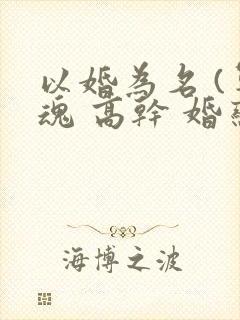 以婚為名(
魂 高幹 婚
海博之波